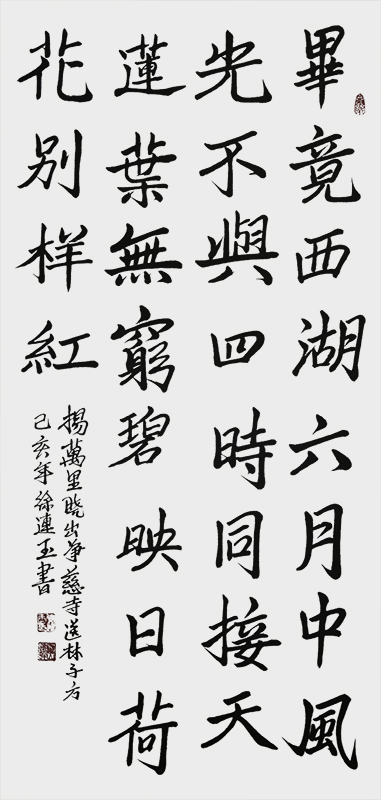 畢竟西湖六月中風
光不與四時同接天
蓮葉無窮碧映日荷
花别样紅
楊萬里曉出净慈寺送林子方
己亥年徐連玉書